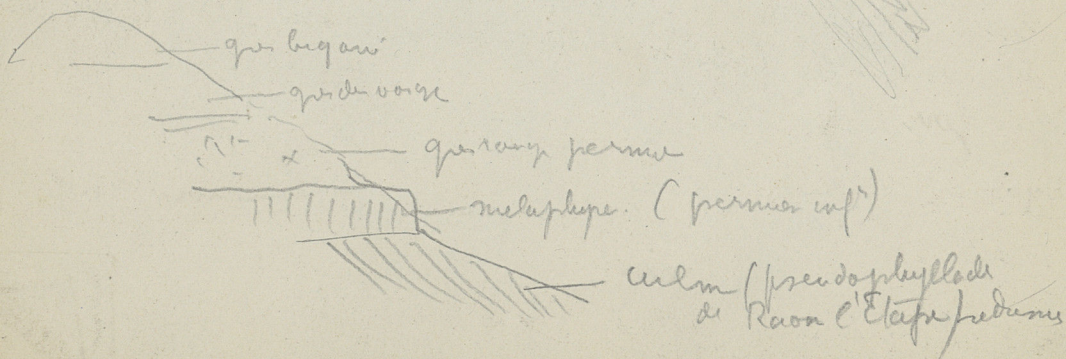 gres bigarré
gres des vosges
gres rouge permien
melaphyre. (permien infr)
culm (pseudophyllade
de Raon l'Etape